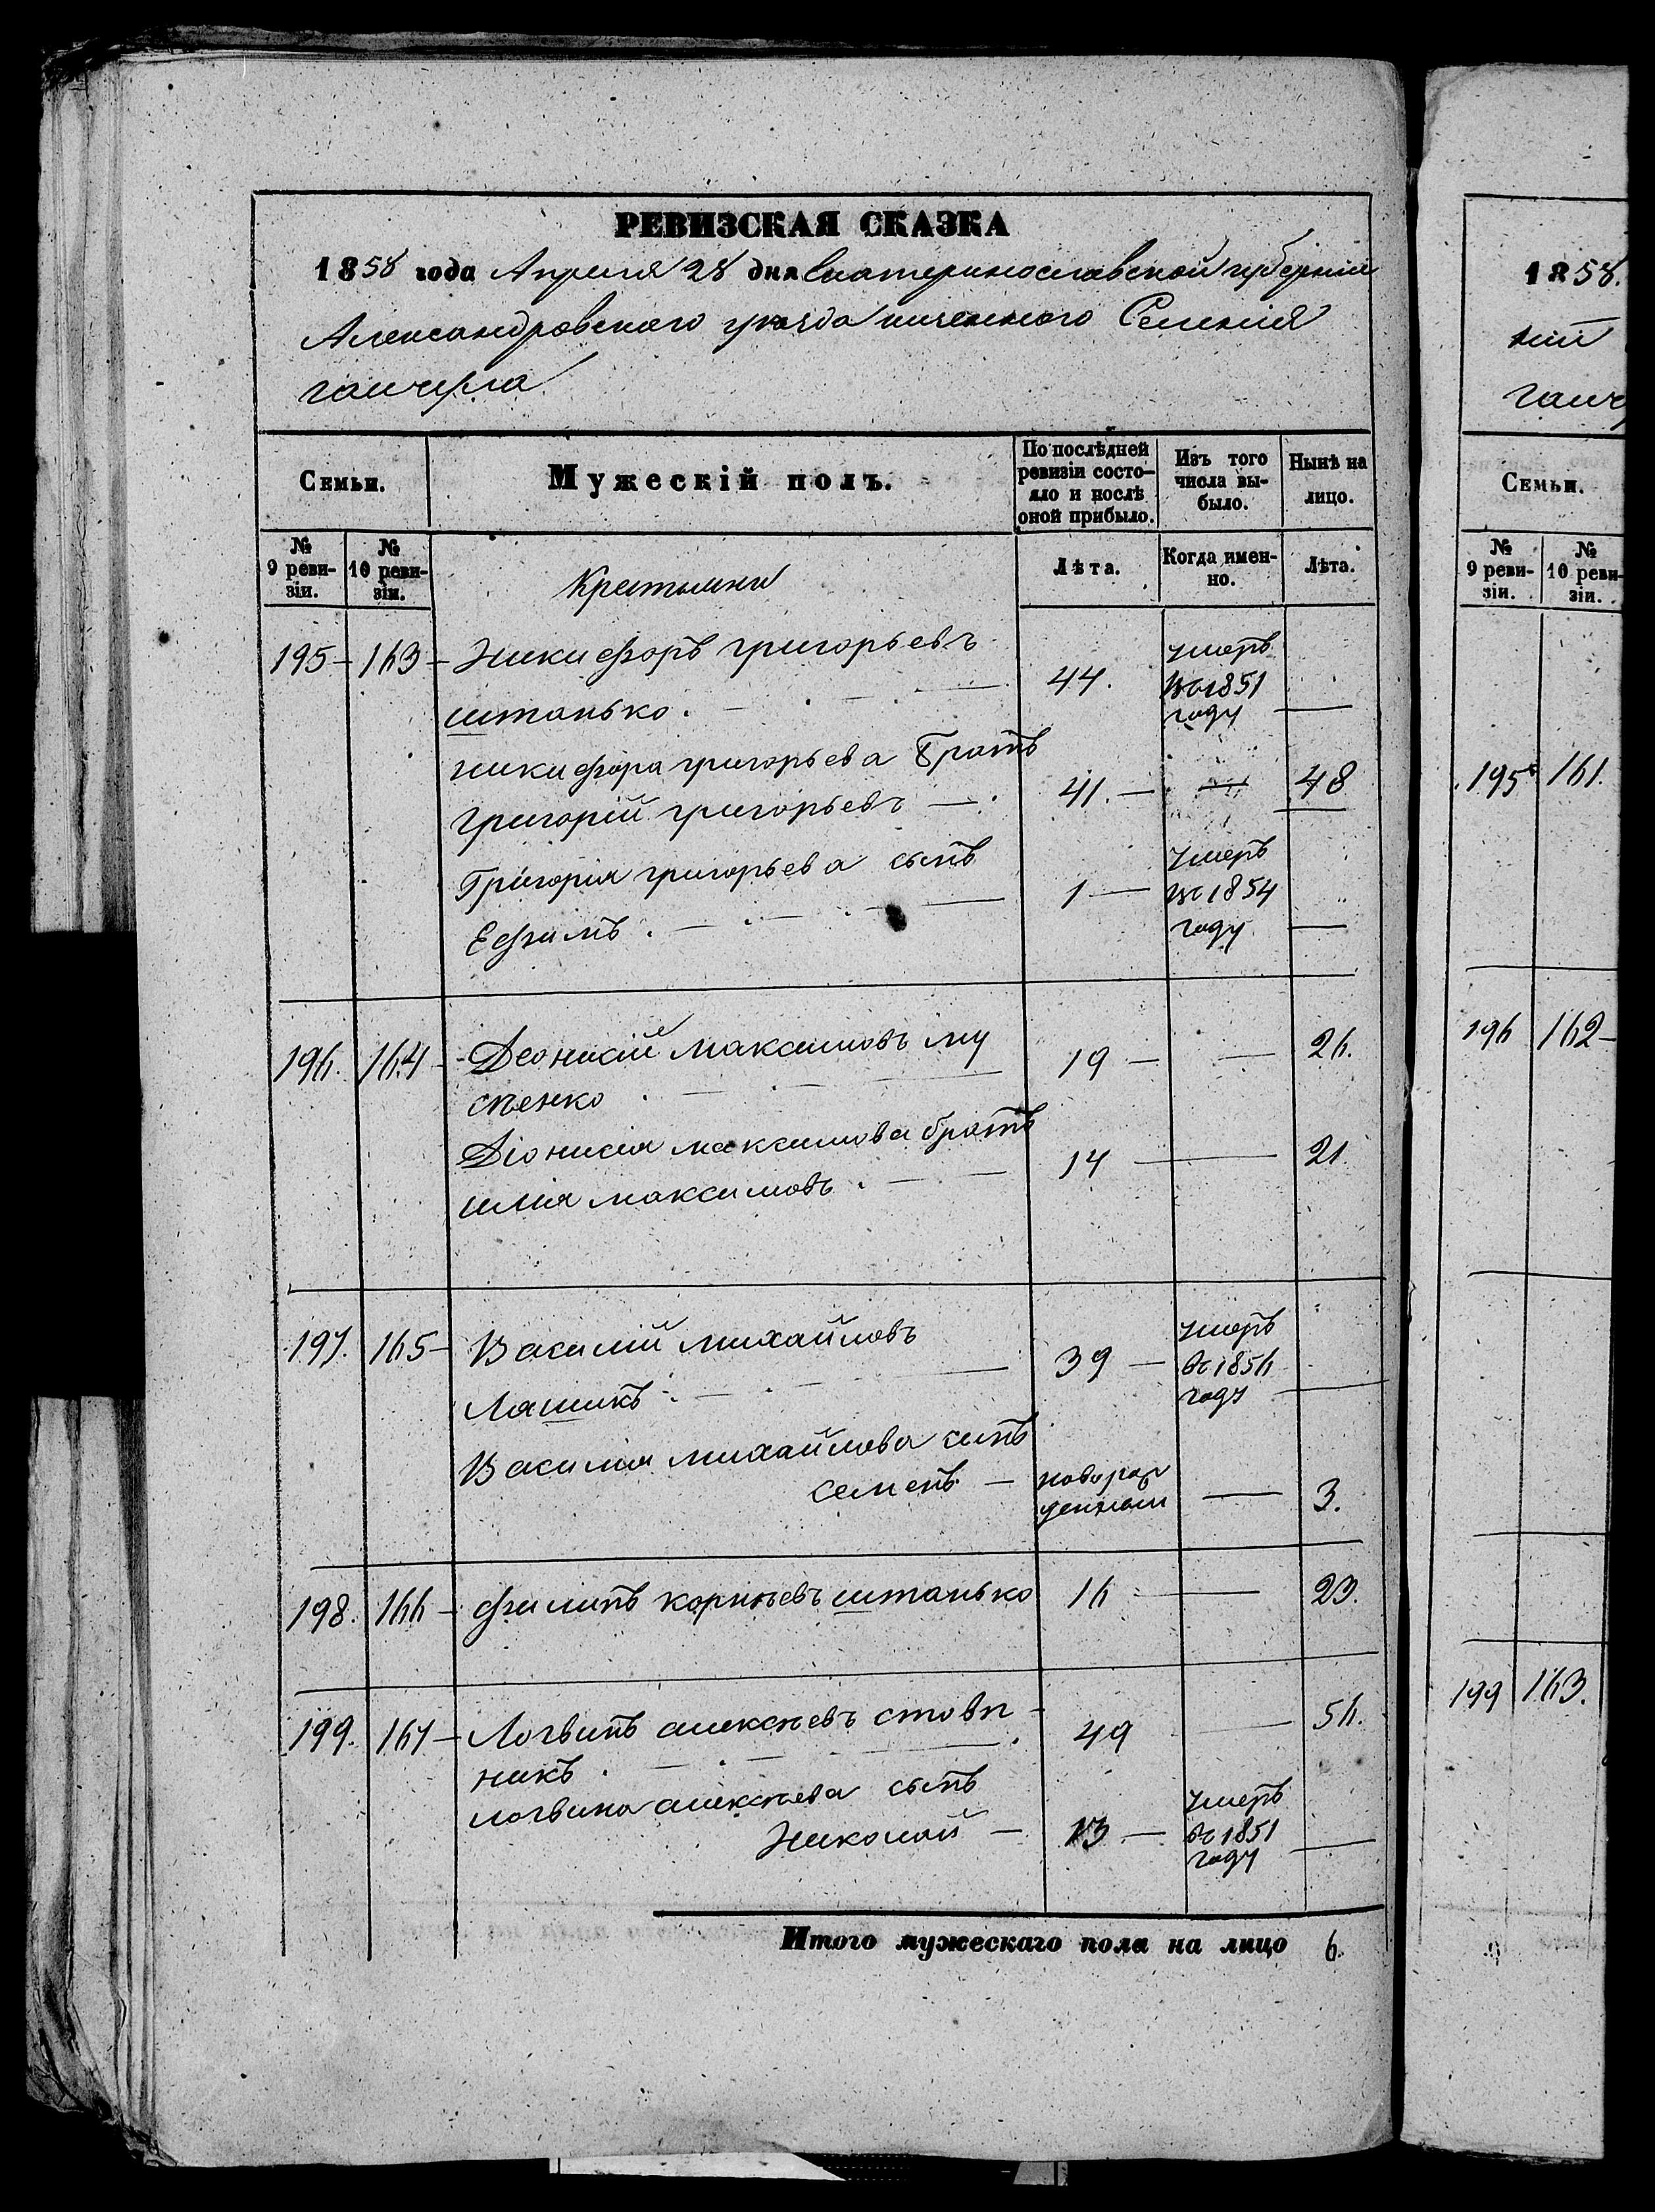 РЕВИЗСКАЯ СКАЗКА
1858 года Апреля 28 дня Екатеринославской губерніи
Александровскаго уѣзда казеннаго Селенія
гайчула
Семьи.
Мужескій полъ.
По послѣдней ревизіи состо-
яло и послѣ оной прибыло.
Изъ того числа вы-
было.
Нынѣ на лицо.
№ 9 реви-
зіи.
№ 10 реви-
зіи.
Крестьяни
Лѣта.
Когда имен-
но.
Лѣта.
195 – 163 – Никифоръ григорьевъ
штанько. 44. умеръ въ 1851 году —
никифора григорьева братъ
григорій григорьевъ — 41. — — 48
Григорія григорьева сынъ
Ефимъ. — 1 — умеръ въ 1854 году —
196. 164 – Деонисій максимовъ му
сіенко. 19 — — 26.
Діонисія максимова братъ
илія максимовъ. — 14 — 21.
197. 165 – Василій михайловъ
Ляшикъ — 39 — умеръ въ 1856 году —
Василія михайлова сынъ
семенъ — новорож
денный — 3.
198. 166 – филипъ корнѣевъ штанько 16 — 23.
199. 167 – Логвинъ алексѣевъ стовп-
никъ. 49 — 56.
логвина алексѣева сынъ
Николай — 13 — умеръ въ 1851 году —
Итого мужескаго пола на лицо 6.
1858.
ній
гайч
Семьи.
№ 9 реви-
зіи.
№ 10 реви-
зіи.
195 161.
196 162 –
199 163.